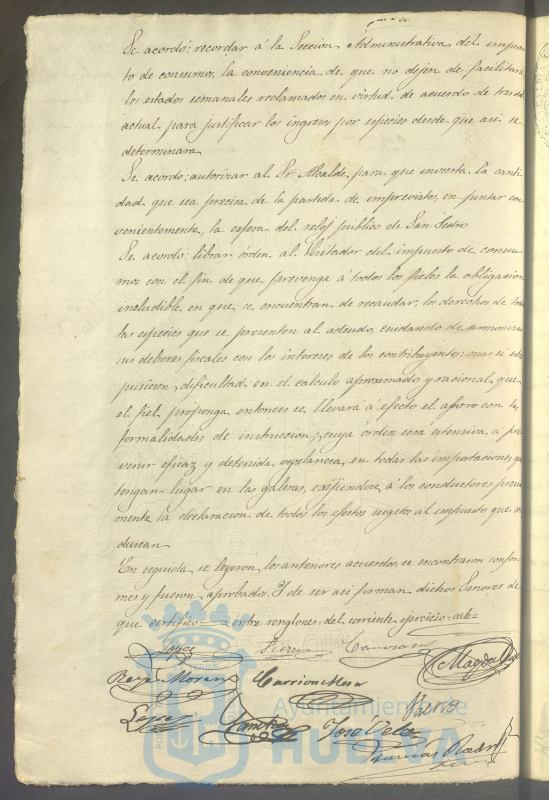 Se acordó: recordar á la Sección Administrativa del impues-
to de consumos, la conveniencia de que no dejen de facilitar
los estados semanales reclamados en virtud de acuerdo de tres
actual para justificar los ingresos por especies desde que asi se
determinara
Se acordo: autorizar al Sr Alcalde, para que invierta la canti-
dad que sea precisa de la partida de imprevistos, en pintar con-
venientemente, la esfera del reloj público de San Pedro
Se acordo; librar órden al Visitador del impuesto de consu-
mos con el fin de que prevenga á todos los fieles la obligacion
ineludible, en que se encuentran de recaudar, los derechos de todas
las especies que se presenten al adeudo, cuidando de armonizar
sus deberes fiscales con los intereses de los contribuyentes; mas si estos
pusiesen dificultad en el calculo aproximado y racional que
el fiel proponga entonces se llevará á efecto el aforo con las
formalidades de instruccion; cuya órden será estensiva á pre-
venir eficaz y detenida vigilancia, en todas las importaciones que
tengan lugar en las galeras, exijiendose á los conductores previa-
mente la declaracion de todos los efectos sugetos al impuesto que con-
duzcan
En seguida se leyeron los anteriores acuerdos, se encontraron confor-
mes y fueron aprobados. Y de ser asi forman dichos Señores de
que certifico = entre renglones = del corriente ejercicio = vale =
Lopez
Reyes Moreno Carrion Mesa
Lopez José Vela
Ayuntamiento de
HUELVA